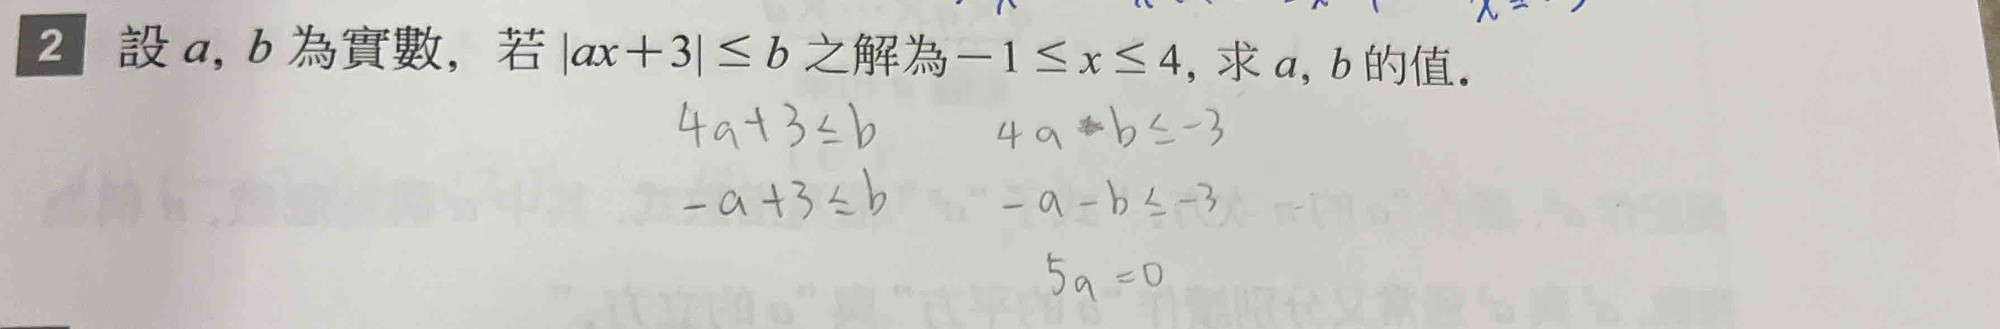 2 設 a, b 為實數，若 |ax+3| ≤ b 之解為 −1 ≤ x ≤ 4, 求 a, b 的值.
4a+3≤b 4a-b≤-3
-a+3≤b -a-b≤-3
5a=0